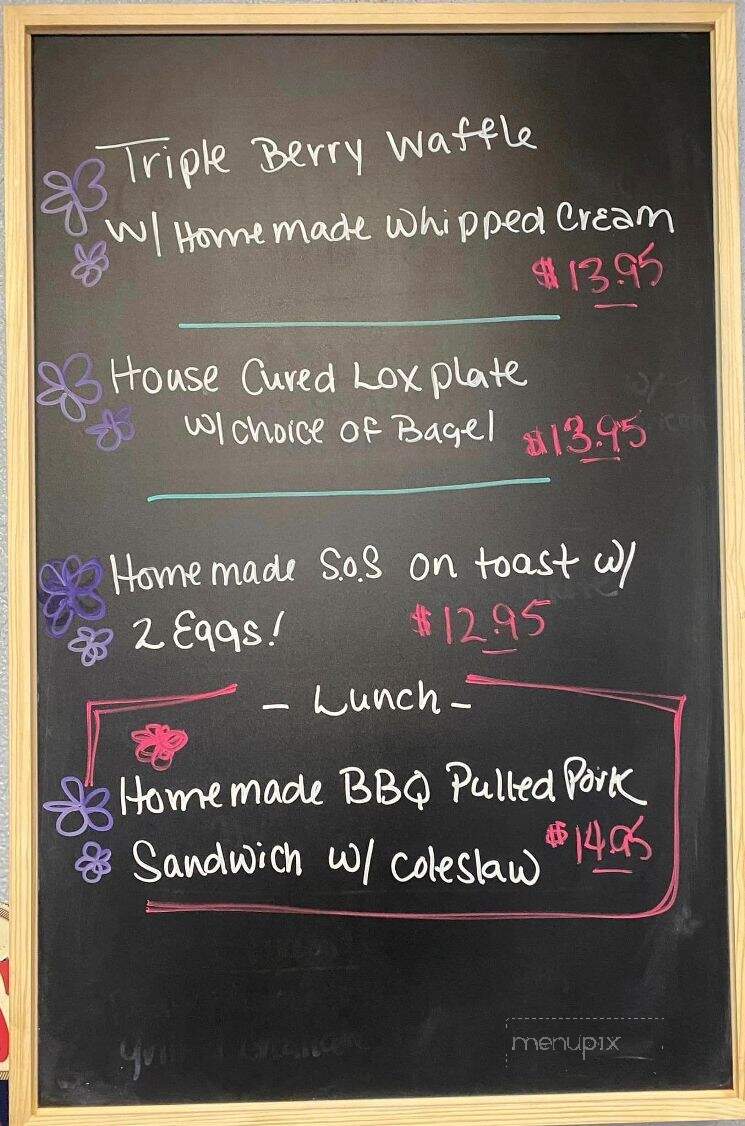 Triple Berry Waffle
W/ Homemade Whipped Cream
$13.95
House Cured Lox plate
w/ choice of Bagel $13.95
Homemade S.O.S on toast w/
2 Eggs! $12.95
- Lunch -
Homemade BBQ Pulled Pork
Sandwich w/ coleslaw $14.95
menupix